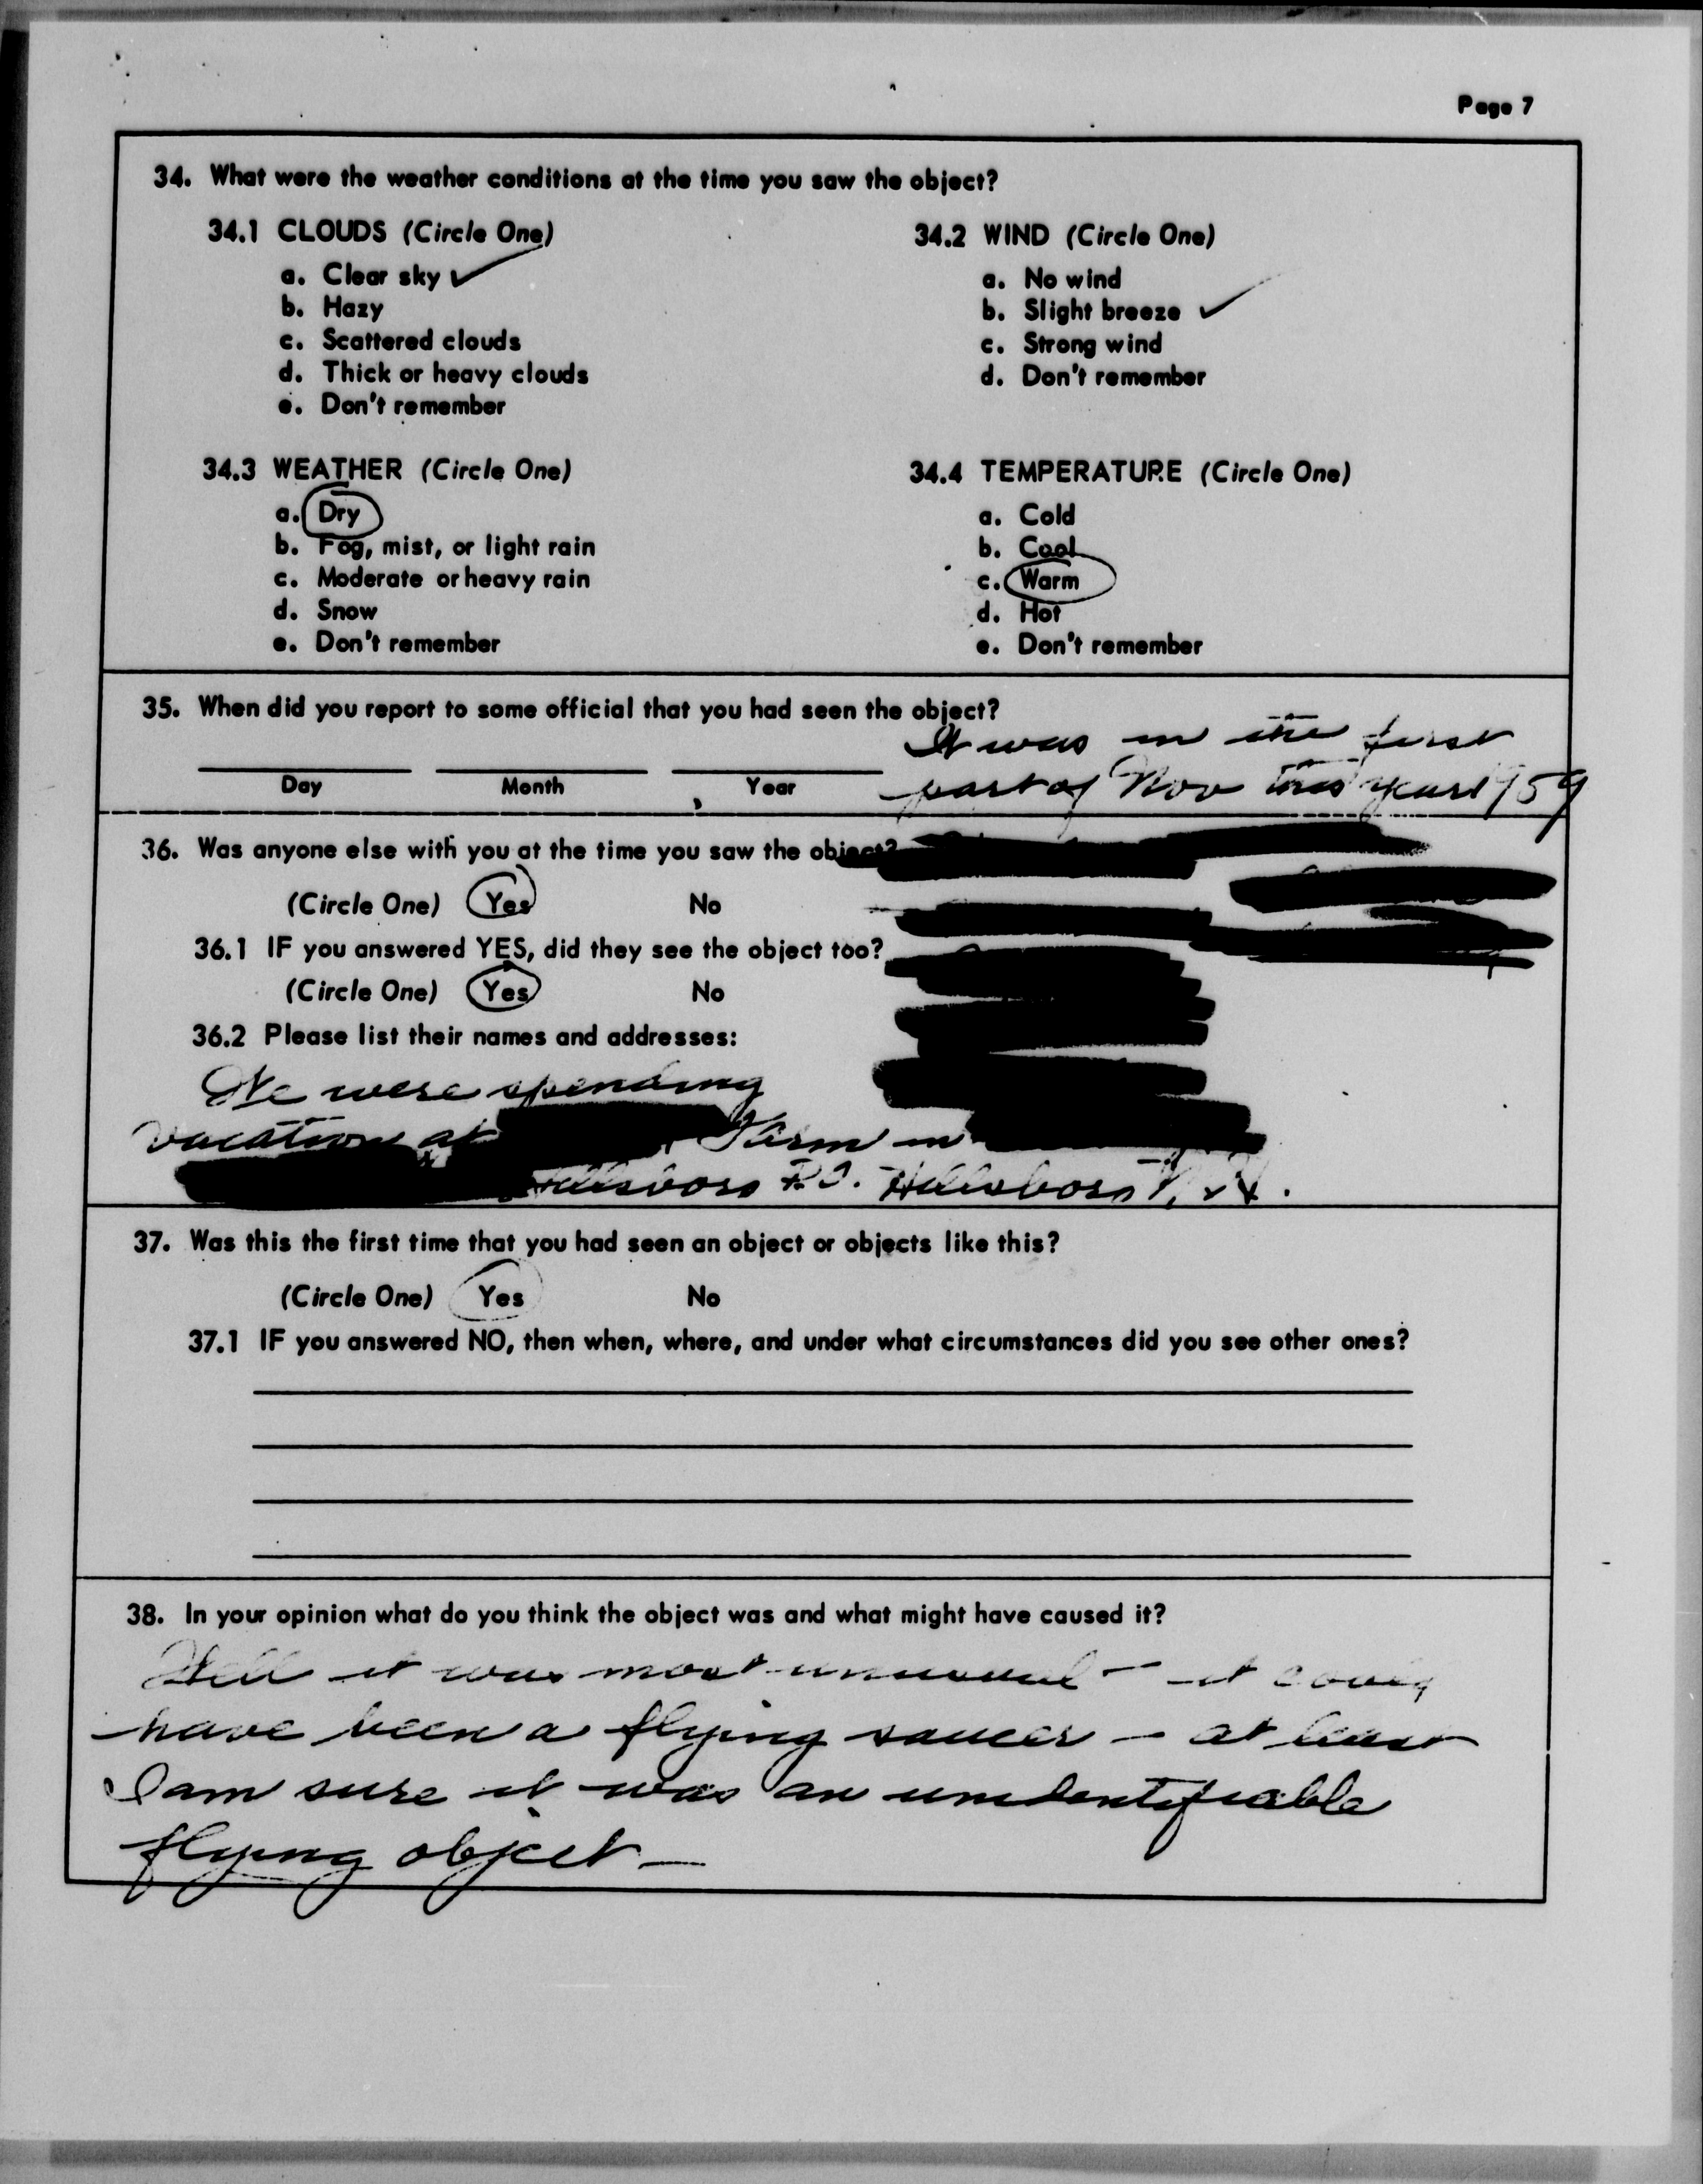 Page 7
34. What were the weather conditions at the time you saw the object?
34.1 CLOUDS (Circle One)
a. Clear sky ✓
b. Hazy
c. Scattered clouds
d. Thick or heavy clouds
e. Don't remember
34.2 WIND (Circle One)
a. No wind
b. Slight breeze ✓
c. Strong wind
d. Don't remember
34.3 WEATHER (Circle One)
a. Dry
b. Fog, mist, or light rain
c. Moderate or heavy rain
d. Snow
e. Don't remember
34.4 TEMPERATURE (Circle One)
a. Cold
b. Cool
c. Warm
d. Hot
e. Don't remember
35. When did you report to some official that you had seen the object?
It was in the first
Day Month Year
part of Nov this year 1959
36. Was anyone else with you at the time you saw the object?
(Circle One) Yes No
36.1 IF you answered YES, did they see the object too?
(Circle One) Yes No
36.2 Please list their names and addresses:
We were spending
vacation at Farm in
Hillsboro P.O. Hillsboro
37. Was this the first time that you had seen an object or objects like this?
(Circle One) Yes No
37.1 IF you answered NO, then when, where, and under what circumstances did you see other ones?
38. In your opinion what do you think the object was and what might have caused it?
Well it was most unusual - it could
have been a flying saucer - at least
I am sure it was an unidentifiable
flying object -